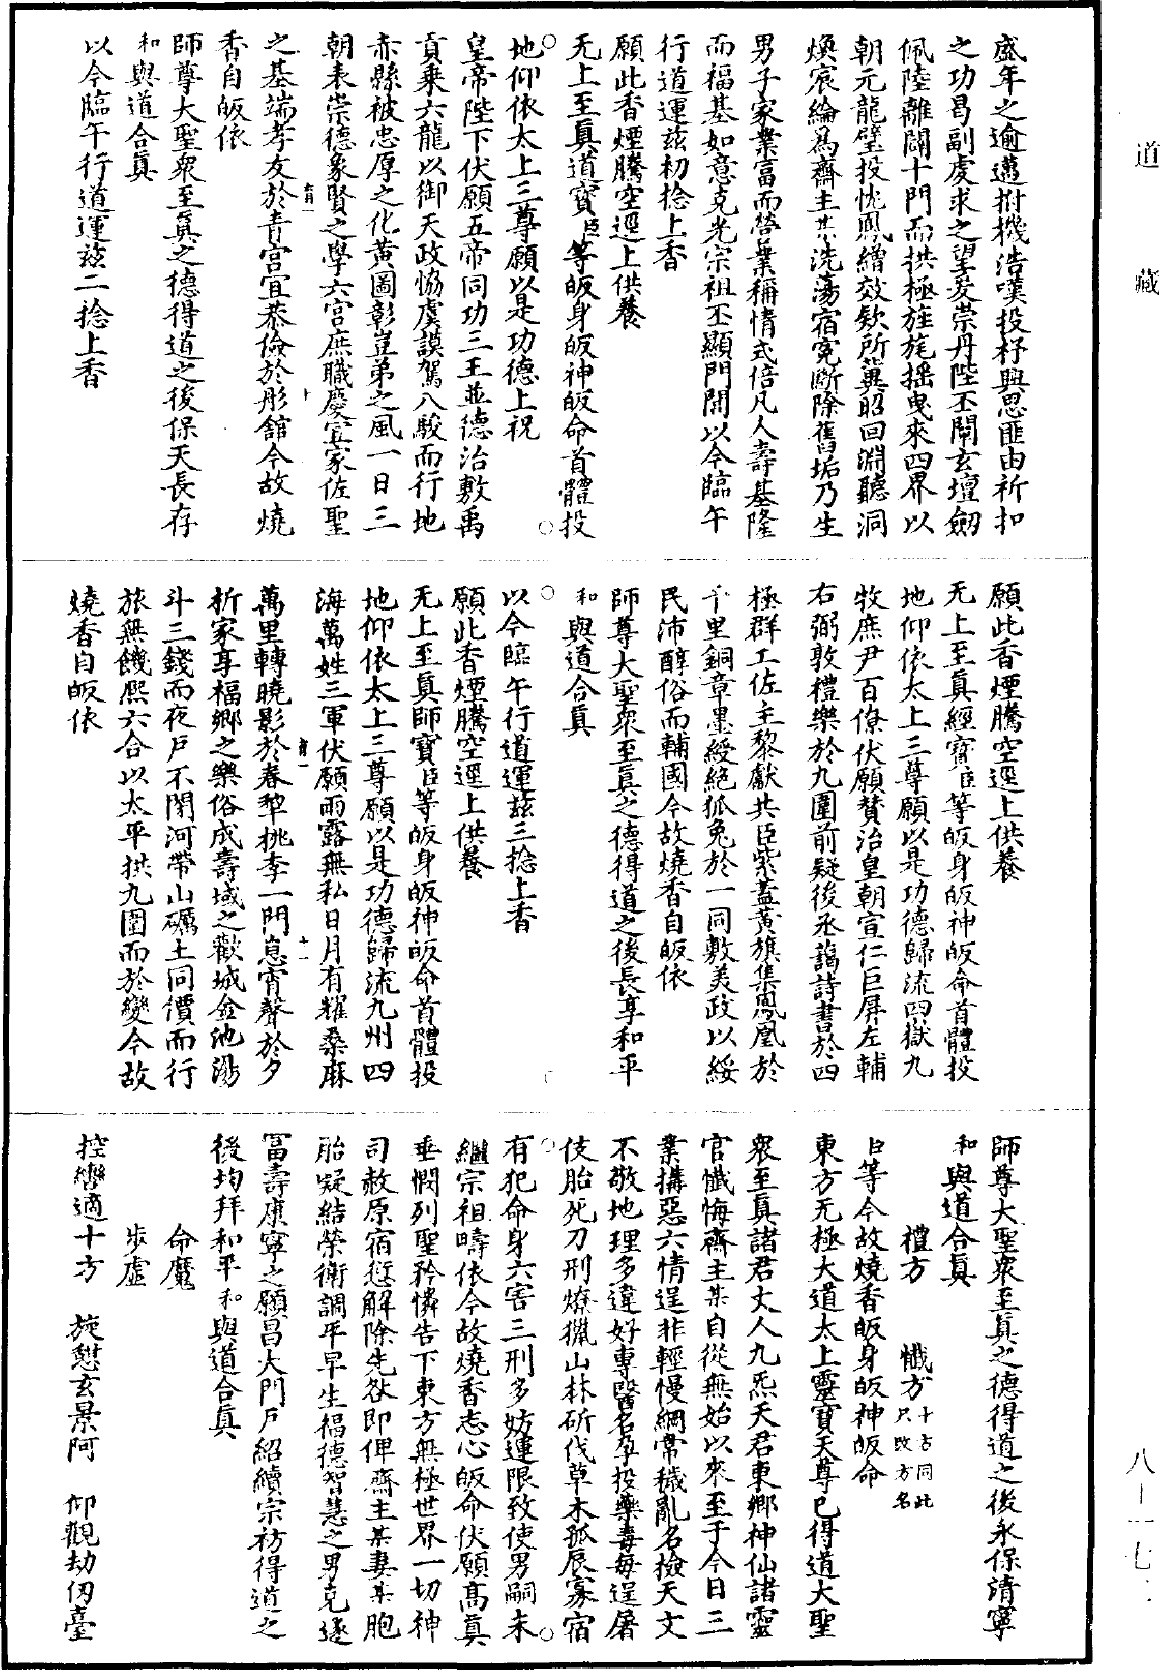 道藏
盛年之逾邁拊機浩嘆投杼興思匪由祈扣
之功曷副虔求之望爰崇丹陛丕闡玄壇劒
佩陸離闢十門而拱極旌旄搖曳來四界以
朝元龍璧投忱鳳繒效欵所冀昭回淵聽洞
煥宸綸爲齋主某洗蕩宿寃斷除舊垢乃生
男子家業富而榮業稱情式倍凡人壽基隆
而福基如意克光宗祖丕顯門閭以今臨午
行道運兹初捻上香
願此香煙騰空逕上供養
无上至眞道寶臣等皈身皈神皈命首體投
地仰依太上三尊願以是功德上祝
皇帝陛下伏願五帝同功三王並德治敷禹
貢乘六龍以御天政恊虞謨駕八駿而行地
赤縣被忠厚之化黃圖彰豈弟之風一日三
朝表崇德象賢之學六宮庶職慶宜家佐聖
之基端孝友於青宮宜恭儉於彤舘今故燒
香自皈依
師尊大聖衆至眞之德得道之後保天長存
和與道合眞
以今臨午行道運兹二捻上香
願此香煙騰空逕上供養
无上至眞經寶臣等皈身皈神皈命首體投
地仰依太上三尊願以是功德歸流四獄九
牧庶尹百僚伏願賛治皇朝宣仁巨屏左輔
右弼敦禮樂於九圍前疑後丞謁詩書於四
極群工佐主黎獻共臣紫蓋黃旗集鳳凰於
千里銅章墨綬絕狐兔於一同敷美政以綏
民沛醇俗而輔國今故燒香自皈依
師尊大聖衆至眞之德得道之後長享和平
和與道合眞
以今臨午行道運兹三捻上香
願此香煙騰空逕上供養
无上至眞師寶臣等皈身皈神皈命首體投
地仰依太上三尊願以是功德歸流九州四
海萬姓三軍伏願雨露無私日月有耀桑麻
萬里轉曉影於春犂桃李一門息宵聲於夕
柝家享福鄉之樂俗成壽域之歡城金池湯
斗三錢而夜戶不閉河帶山礪土同價而行
旅無饑熙六合以太平拱九圍而於變今故
燒香自皈依
師尊大聖衆至眞之德得道之後永保清寧
和與道合眞
禮方 懺方十方同此只改方名
臣等今故燒香皈身皈神皈命
東方无極大道太上靈寶天尊已得道大聖
衆至眞諸君丈人九炁天君東鄉神仙諸靈
官懺悔齋主某自從無始以來至于今日三
業搆惡六情逞非輕慢綱常穢亂名撿天文
不敬地理多違好專醫名孕投藥毒每逞屠
伎胎死刀刑燎獵山林斫伐草木孤辰寡宿
有犯命身六害三刑多妨運限致使男嗣未
繼宗祖疇依今故燒香志心皈命伏願高眞
垂憫列聖矜憐告下東方無極世界一切神
司赦原宿愆解除先咎即俾齋主某妻某胞
胎凝結榮衛調平早生福德智慧之男克遂
富壽康寧之願昌大門戶紹續宗祊得道之
後均拜和平和與道合眞
命魔
步虛
控轡適十方 旋憇玄景阿 仰觀劫仞臺